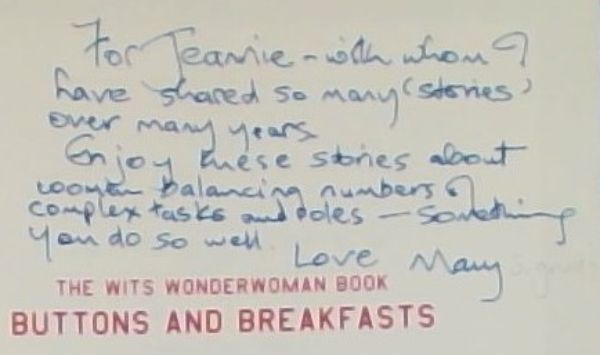 For Jeannie - with whom I
have shared so many 'stories'
over many years
Enjoy these stories about
women balancing numbers of
complex tasks and roles — something
you do so well.
Love Mary
THE WITS WONDERWOMAN BOOK
BUTTONS AND BREAKFASTS